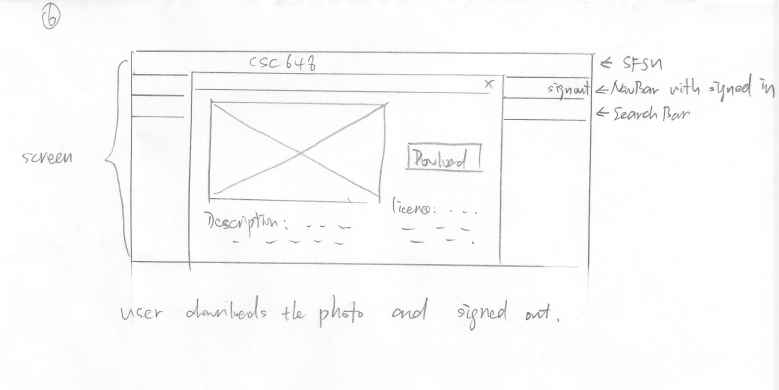 6
CSC 648
← SFSU
x
signout
← NavBar with signed in
← Search Bar
screen
Download
Description: - - -
licence: - - -
user downloads the photo and signed out.